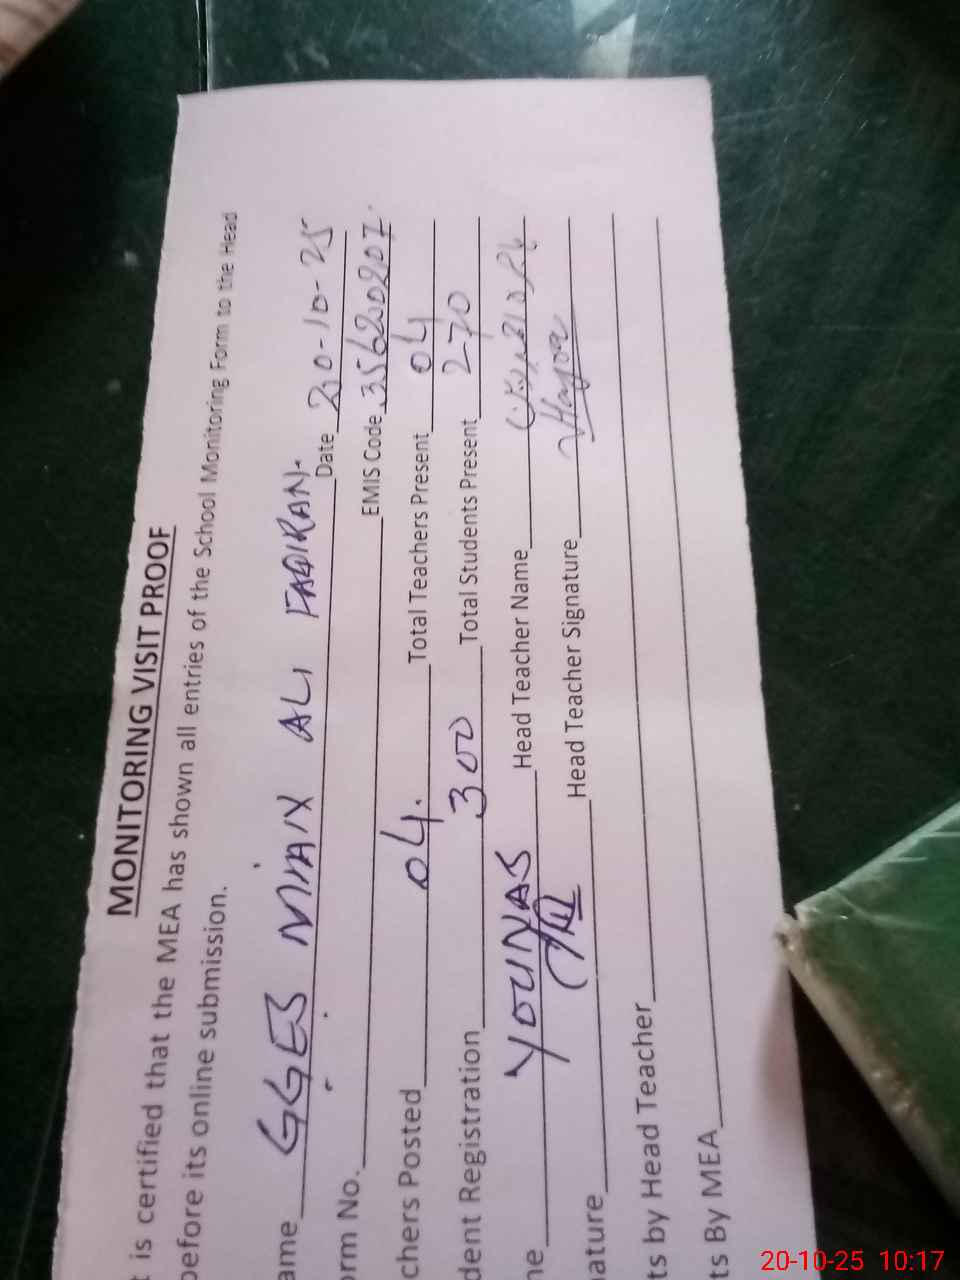 MONITORING VISIT PROOF
t is certified that the MEA has shown all entries of the School Monitoring Form to the Head
before its online submission.
ame GGES MIAN ALI FAQIRAN. Date 20-10-25
orm No. EMIS Code 35620207.
chers Posted 04. Total Teachers Present 04
dent Registration 300 Total Students Present 270
ne YOUNAS Head Teacher Name
nature Head Teacher Signature
ts by Head Teacher
ts By MEA
20-10-25 10:17